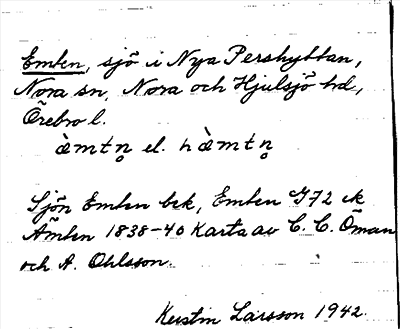 Emten, sjö i Nya Pershyttan,
Nora sn, Nora och Hjulsjö hd,
Örebro l.
ὰmtn̥ el. hὰmtn̥
Sjön Emten bek, Emten G72 ek
Ämten 1838-40 Karta av C. C. Öman
och A. Ohlsson.
Kerstin Larsson 1942.